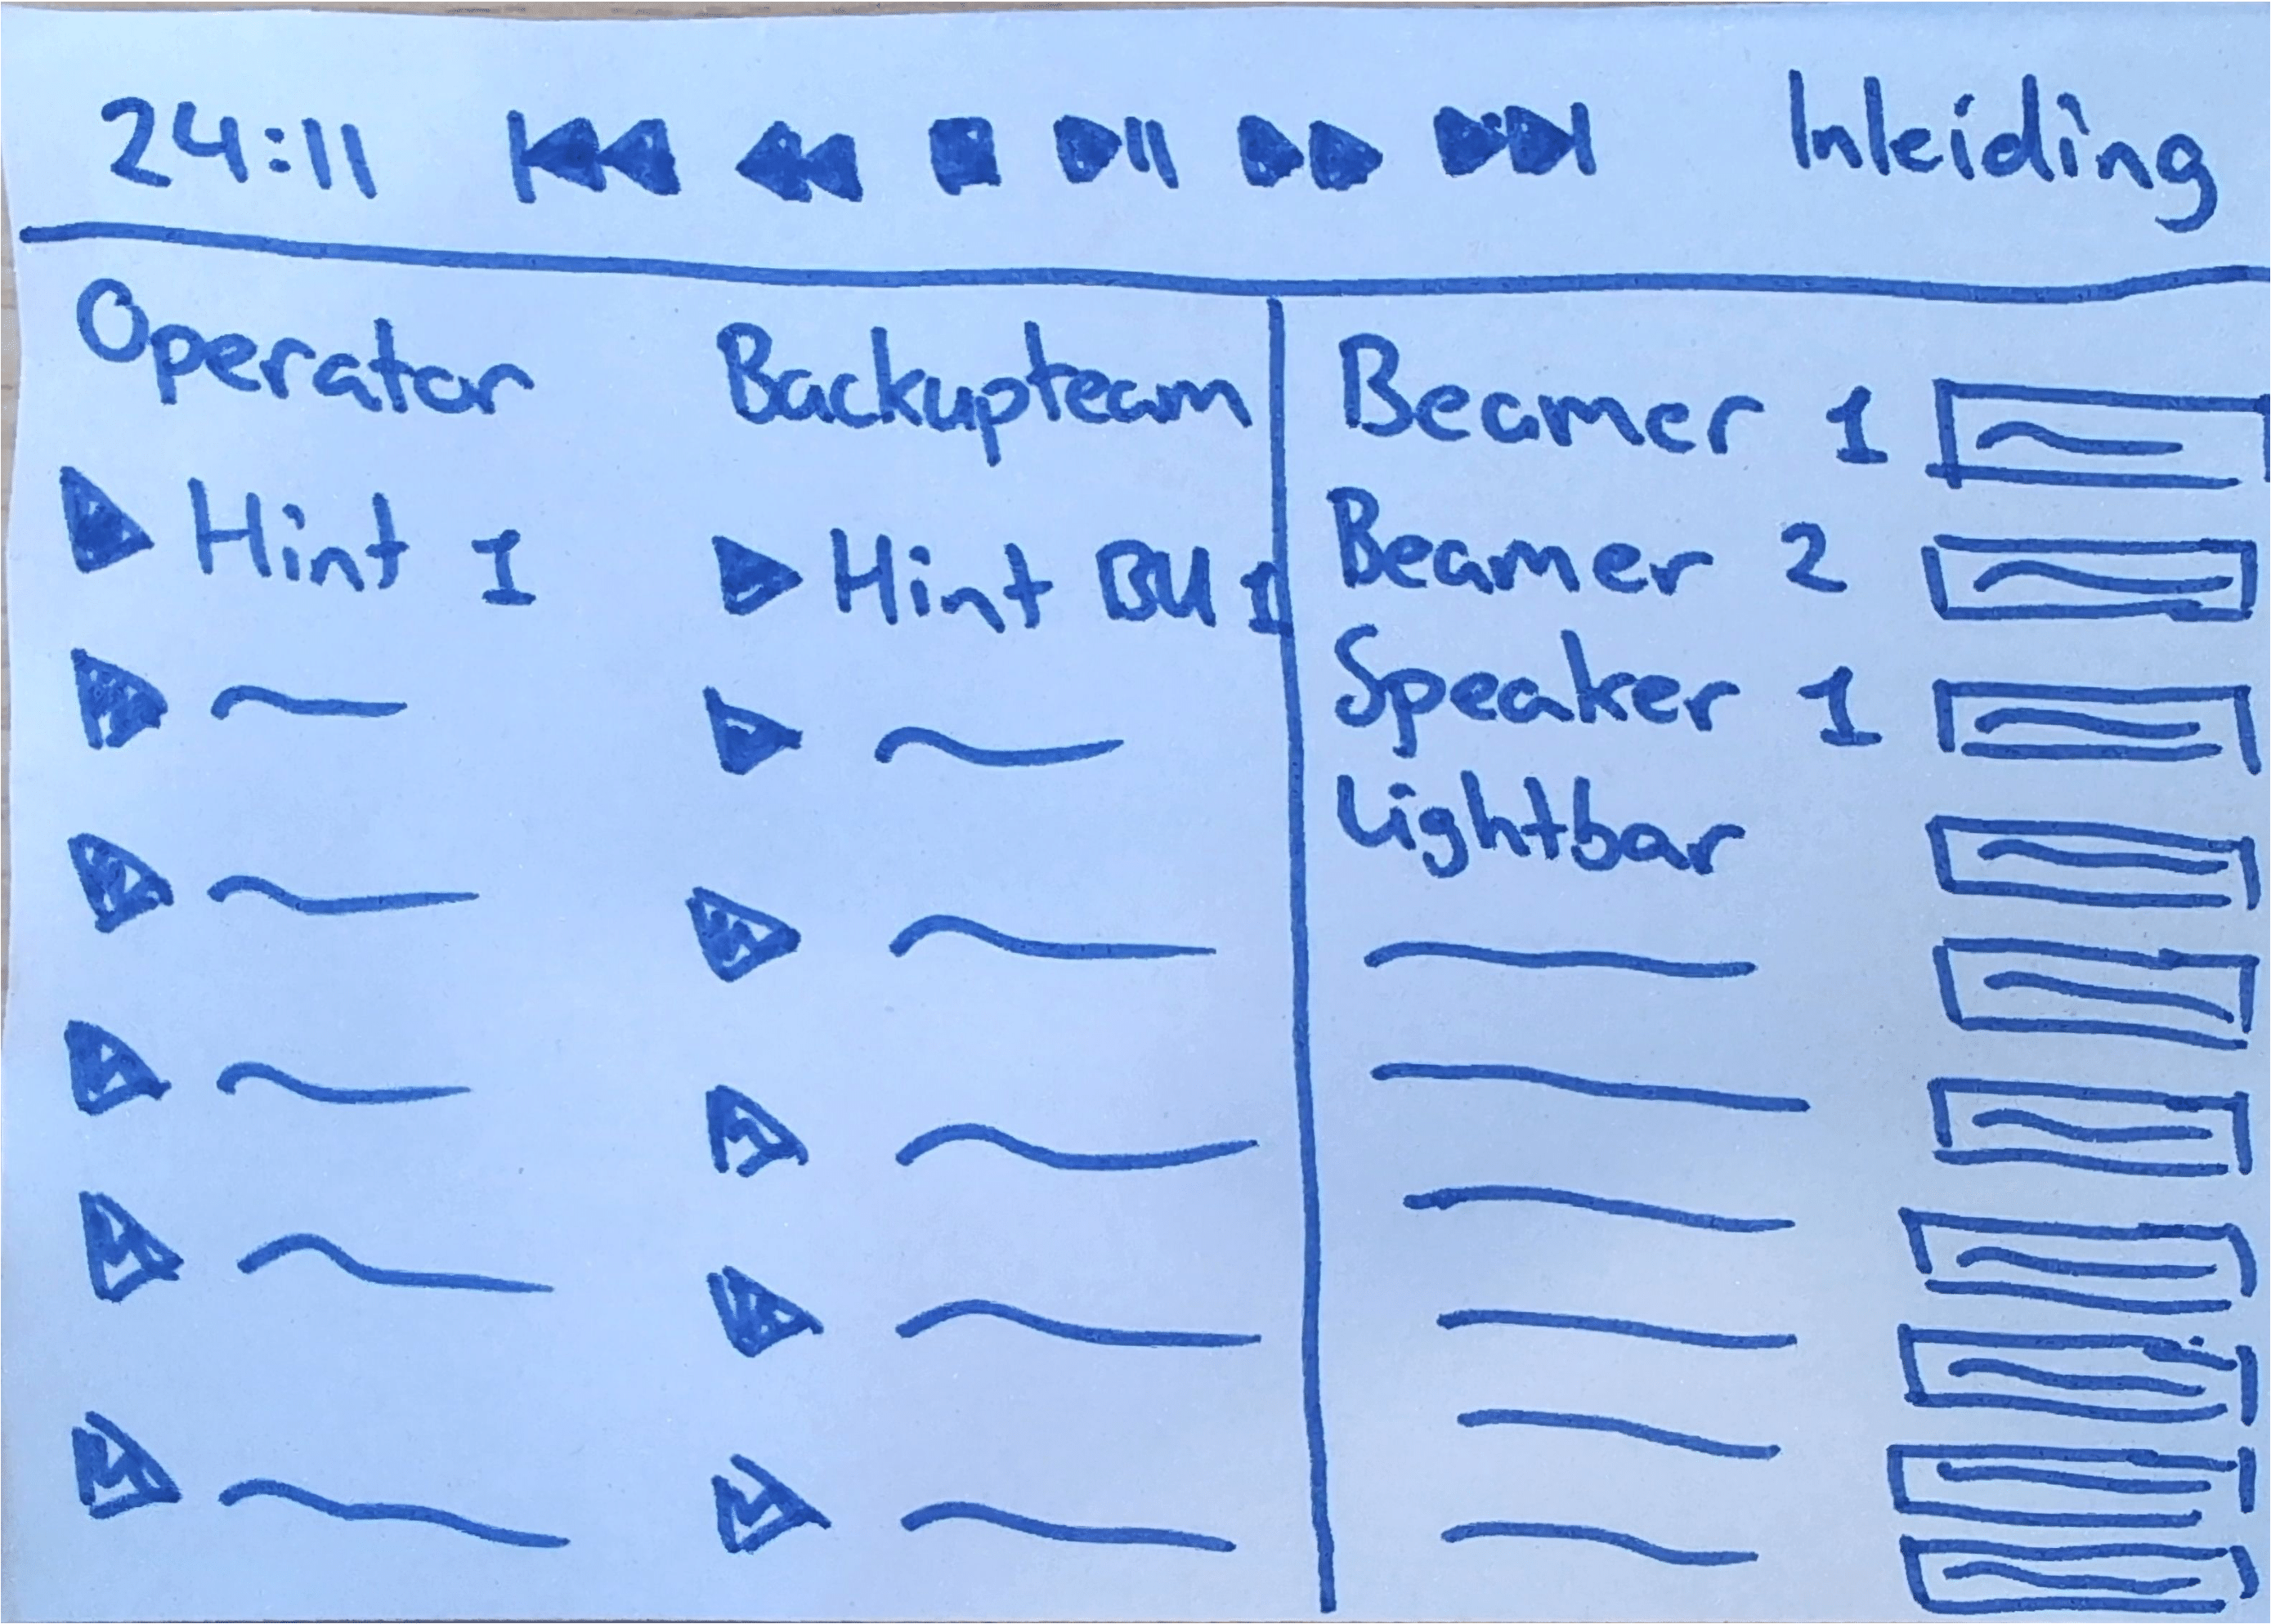 24:11 Inleiding
Operator Backupteam
Hint 1 Hint BU 1
Beamer 1
Beamer 2
Speaker 1
Lightbar